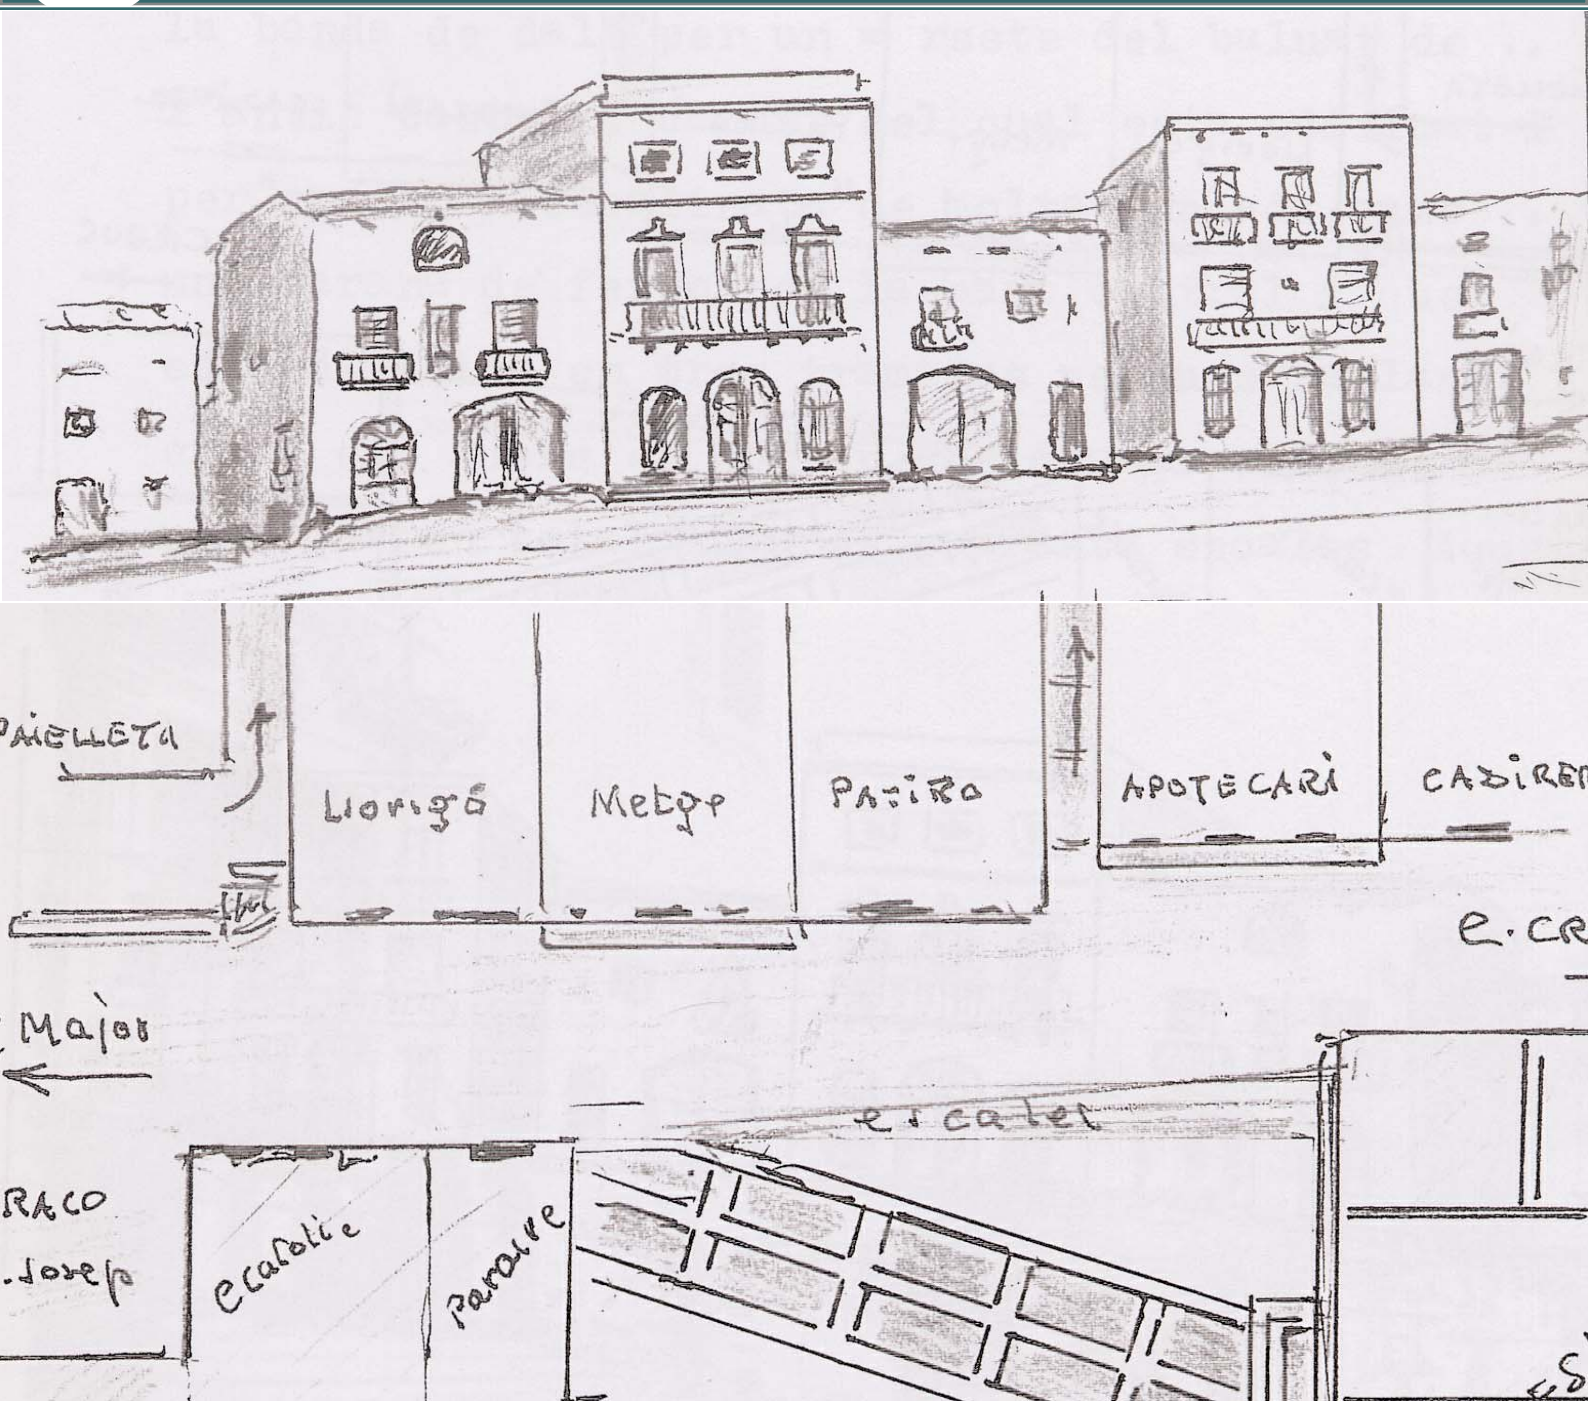 PAIELLETA
Llorigó
Metge
PATIRO
APOTECARI
CADIRER
e. CR
Major
escales
RACO
. Josep
ecatolic
Paraire
«S